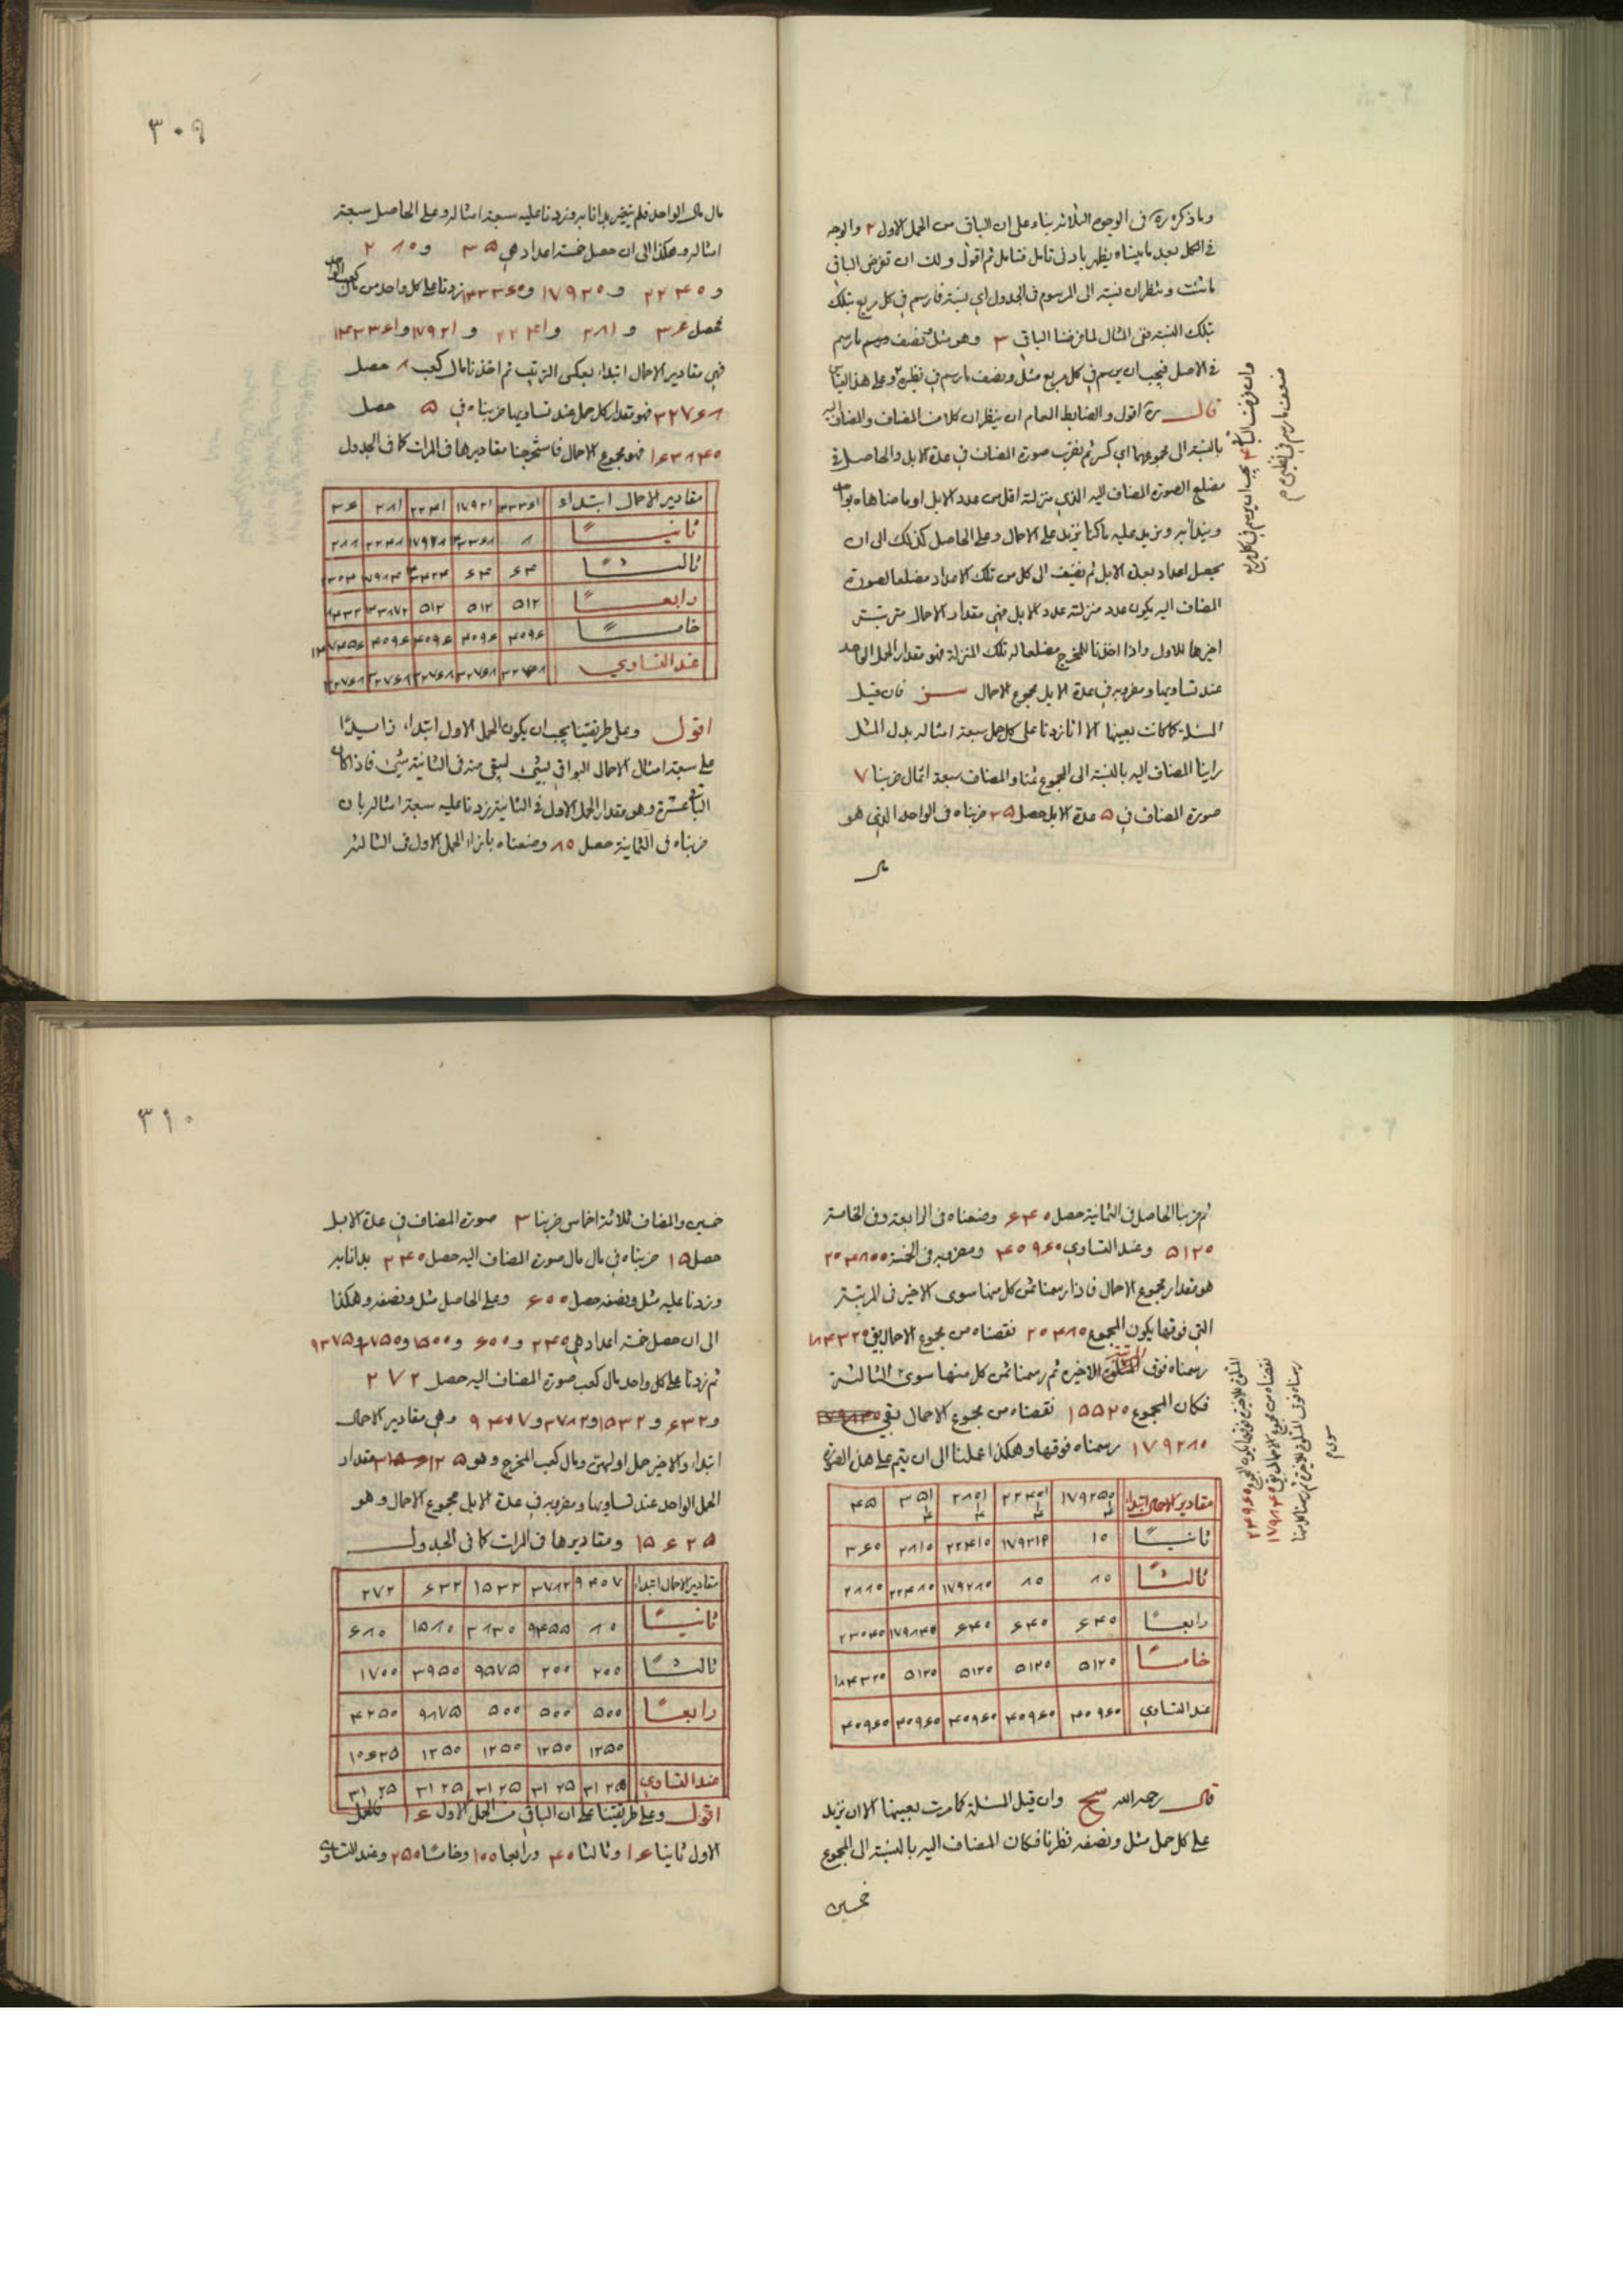 وما ذكره ره في الوجوه الثلاثة بناء على ان الباقي من الحمل الاول ٢ والوجه
في الكل بعد ما بيناه يظهر بادنى تامل فتامل ثم اقول ولك ان تفرض الباقي
ما شئت وتنظر ان نسبته الى المرسوم في الجدول اي نسبة فارسم في كل مربع بتلك
بتلك النسبة ففي المثال لما فرضنا الباقي ٣ وهو مثل ونصف مرسم ما رسم
في الاصل فيجب ان يرسم في كل مربع مثل ونصف ما رسم في نظيره وعلى هذا القياس
قال ره اقول والضابط العام ان ينظر ان كلا من المضاف والمضاف اليه
بالنسبة الى مجموعهما اي كسر ثم نضرب صورة المضاف في عدة الابل والحاصل في
مضلع الصورة المضاف اليه الذي منزلته اقل من عدد الابل اوما ضاهاه بواحد
ونبدا به ونزيد عليه ما كنا نزيد على الاحمال وعلى الحاصل كذلك الى ان
يحصل اعداد بعدة الابل ثم نضيف الى كل من تلك الاعداد مضلعا لصورة
المضاف اليه يكون عدد منزلته عدد الابل فهي مقدار الاحمال مترتبتر
اخيرها للاول واذا اخذنا للمخرج مضلعا له تلك المنزلة فهو مقدار الحمل الواحد
عند تساويها ومضروبه في عدة الابل مجموع الاحمال فان قيل
المسئلة كما كانت بعينها الا انا زدنا على كل حمل سبعة امثاله بدل المثل
راينا المضاف اليه بالنسبة الى المجموع ثمنا والمضاف سبعة اثمان ضربنا ٧
صورة المضاف في ٥ عدة الابل حصل ٣٥ ضربناه في الواحد الذي هو
مال
وان فرضت الباقي ٤ يجب ان يرسم في كل مربع
ضعف ما رسم في نظيره م
٣٠٩
مال مال الواحد فلم يتغير بدانا به وزدنا عليه سبعة امثاله وعلى الحاصل سبعة
امثاله وهكذا الى ان حصل خمسة اعداد هي ٣٥ و ٢٨٠
و ٢٢٤٠ و ١٧٩٢٠ و ١٤٣٣٦٠ زدنا على كل واحد من مال كعب الواحد
فحصل ٣٦ و ٢٨١ و ٢٢٤١ و ١٧٩٢١ و ١٤٣٣٦١
فهي مقادير الاحمال ابتداء بعكس الترتيب ثم اخذنا مال كعب ٨ حصل
٣٢٧٦٨ فهو مقدار كل حمل عند تساويها ضربناه في ٥ حصل
١٦٣٨٤٠ فهو مجموع الاحمال فاستخرجنا مقاديرها في المرات كما في الجدول
مقادير الاحمال ابتداء ١٤٣٣٦١ ١٧٩٢١ ٢٢٤١ ٢٨١ ٣٦
ثانيًا ٨ ١٤٣٣٦٨ ١٧٩٢٨ ٢٢٤٨ ٢٨٨
ثالثًا ٦٤ ٦٤ ١٤٣٤٢٤ ١٧٩٨٤ ٢٣٠٤
رابعًا ٥١٢ ٥١٢ ٥١٢ ١٤٣٨٧٢ ١٨٤٣٢
خامسًا ٤٠٩٦ ٤٠٩٦ ٤٠٩٦ ٤٠٩٦ ١٤٧٤٥٦
عند التساوي ٣٢٧٦٨ ٣٢٧٦٨ ٣٢٧٦٨ ٣٢٧٦٨ ٣٢٧٦٨
اقول وعلى طريقتنا يجب ان يكون الحمل الاول ابتداء زايدًا
على سبعة امثال الاحمال البواقي بشئ ليبقى منه في الثانية شئ فاذا كان
الباقي عشرة وهو مقدار الحمل الاول في الثانية زدنا عليه سبعة امثاله بان
ضربناه في الثمانية حصل ٨٠ وضعناه بازاء الحمل الاول في الثالثة
ثم ضربنا الحاصل في الثمانية حصل ٦٤٠ وضعناه في الرابعة وفي الخامسة
٥١٢٠ وعند التساوي ٤٠٩٦٠ ومضروبه في الخمسة ٢٠٤٨٠٠
هو مقدار مجموع الاحمال فاذا رسمنا ثمن كل منها سوى الاخير في المرتبة
التي فوقها يكون المجموع ٢٠٤٨٠ نقصناه من مجموع الاحمال بقي ١٨٤٣٢٠
رسمناه فوق الاخيرة ثم رسمنا ثمن كل منها سوى الثالثة
فكان المجموع ١٥٥٢٠ نقصناه من مجموع الاحمال بقي
١٧٩٢٨٠ رسمناه فوقها وهكذا عملنا الى ان يتم على هذا الصورة
مقادير الاحمال ابتداء ١٧٩٢٥٠ ٢٢٤٠١ ٢٨٠١ ٣٥١ ٤٥
ثانيًا ١٠ ١٧٩٢١٠ ٢٢٤١٠ ٢٨١٠ ٣٦٠
ثالثًا ٨٠ ٨٠ ١٧٩٢٨٠ ٢٢٤٨٠ ٢٨٨٠
رابعًا ٦٤٠ ٦٤٠ ٦٤٠ ١٧٩٨٤٠ ٢٣٠٤٠
خامسًا ٥١٢٠ ٥١٢٠ ٥١٢٠ ٥١٢٠ ١٨٤٣٢٠
عند التساوي ٤٠٩٦٠ ٤٠٩٦٠ ٤٠٩٦٠ ٤٠٩٦٠ ٤٠٩٦٠
قال رحمه الله وان قيل المسئلة كما مرت بعينها الا ان نزيد
على كل حمل مثل ونصفه نظرنا فكان المضاف اليه بالنسبة الى المجموع
خمسين
نقصناه من مجموع الاحمال بقي ١٧٩٨٤٠
٣١٠
خمسين والمضاف ثلاثة اخماس ضربنا ٣ صورة المضاف في عدة الابل
حصل ١٥ ضربناه في مال مال صورة المضاف اليه حصل ٢٤٠ بدانا به
وزدنا عليه مثل ونصفه حصل ٦٠٠ وعلى الحاصل مثل ونصفه وهكذا
الى ان حصل خمسة اعداد هي ٢٤٠ و ٦٠٠ و ١٥٠٠ و ٣٧٥٠ و ٩٣٧٥
ثم زدنا على كل واحد مال كعب صورة المضاف اليه حصل ٢٧٢
و ٦٣٢ و ١٥٣٢ و ٣٧٨٢ و ٩٤٠٧ وهي مقادير الاحمال
ابتداء والاخير حمل اولهن ومال كعب المخرج وهو ٣١٢٥ مقدار
الحمل الواحد عند تساويها ومضروبه في عدة الابل مجموع الاحمال وهو
١٥٦٢٥ ومقاديرها في المرات كما في الجدول
مقادير الاحمال ابتداء ٩٤٠٧ ٣٧٨٢ ١٥٣٢ ٦٣٢ ٢٧٢
ثانيًا ٨٠ ٩٤٥٥ ٣٨٣٠ ١٥٨٠ ٦٨٠
ثالثًا ٢٠٠ ٢٠٠ ٩٥٧٥ ٣٩٥٠ ١٧٠٠
رابعًا ٥٠٠ ٥٠٠ ٥٠٠ ٩٨٧٥ ٤٢٥٠
١٢٥٠ ١٢٥٠ ١٢٥٠ ١٢٥٠ ١٠٦٢٥
عند التساوي ٣١٢٥ ٣١٢٥ ٣١٢٥ ٣١٢٥ ٣١٢٥
اقول وعلى طريقتنا على ان الباقي من الحمل الاول ١٦ فالحمل
الاول ثانيا ١٦ وثالثا ٤٠ ورابعا ١٠٠ وخامسا ٢٥٠ وعند التساوي